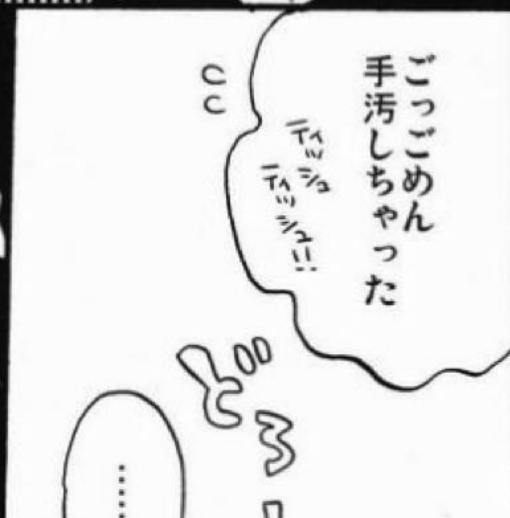 ごっごめん
手汚しちゃった
ティッシュ
ティッシュ!!
どろ
……